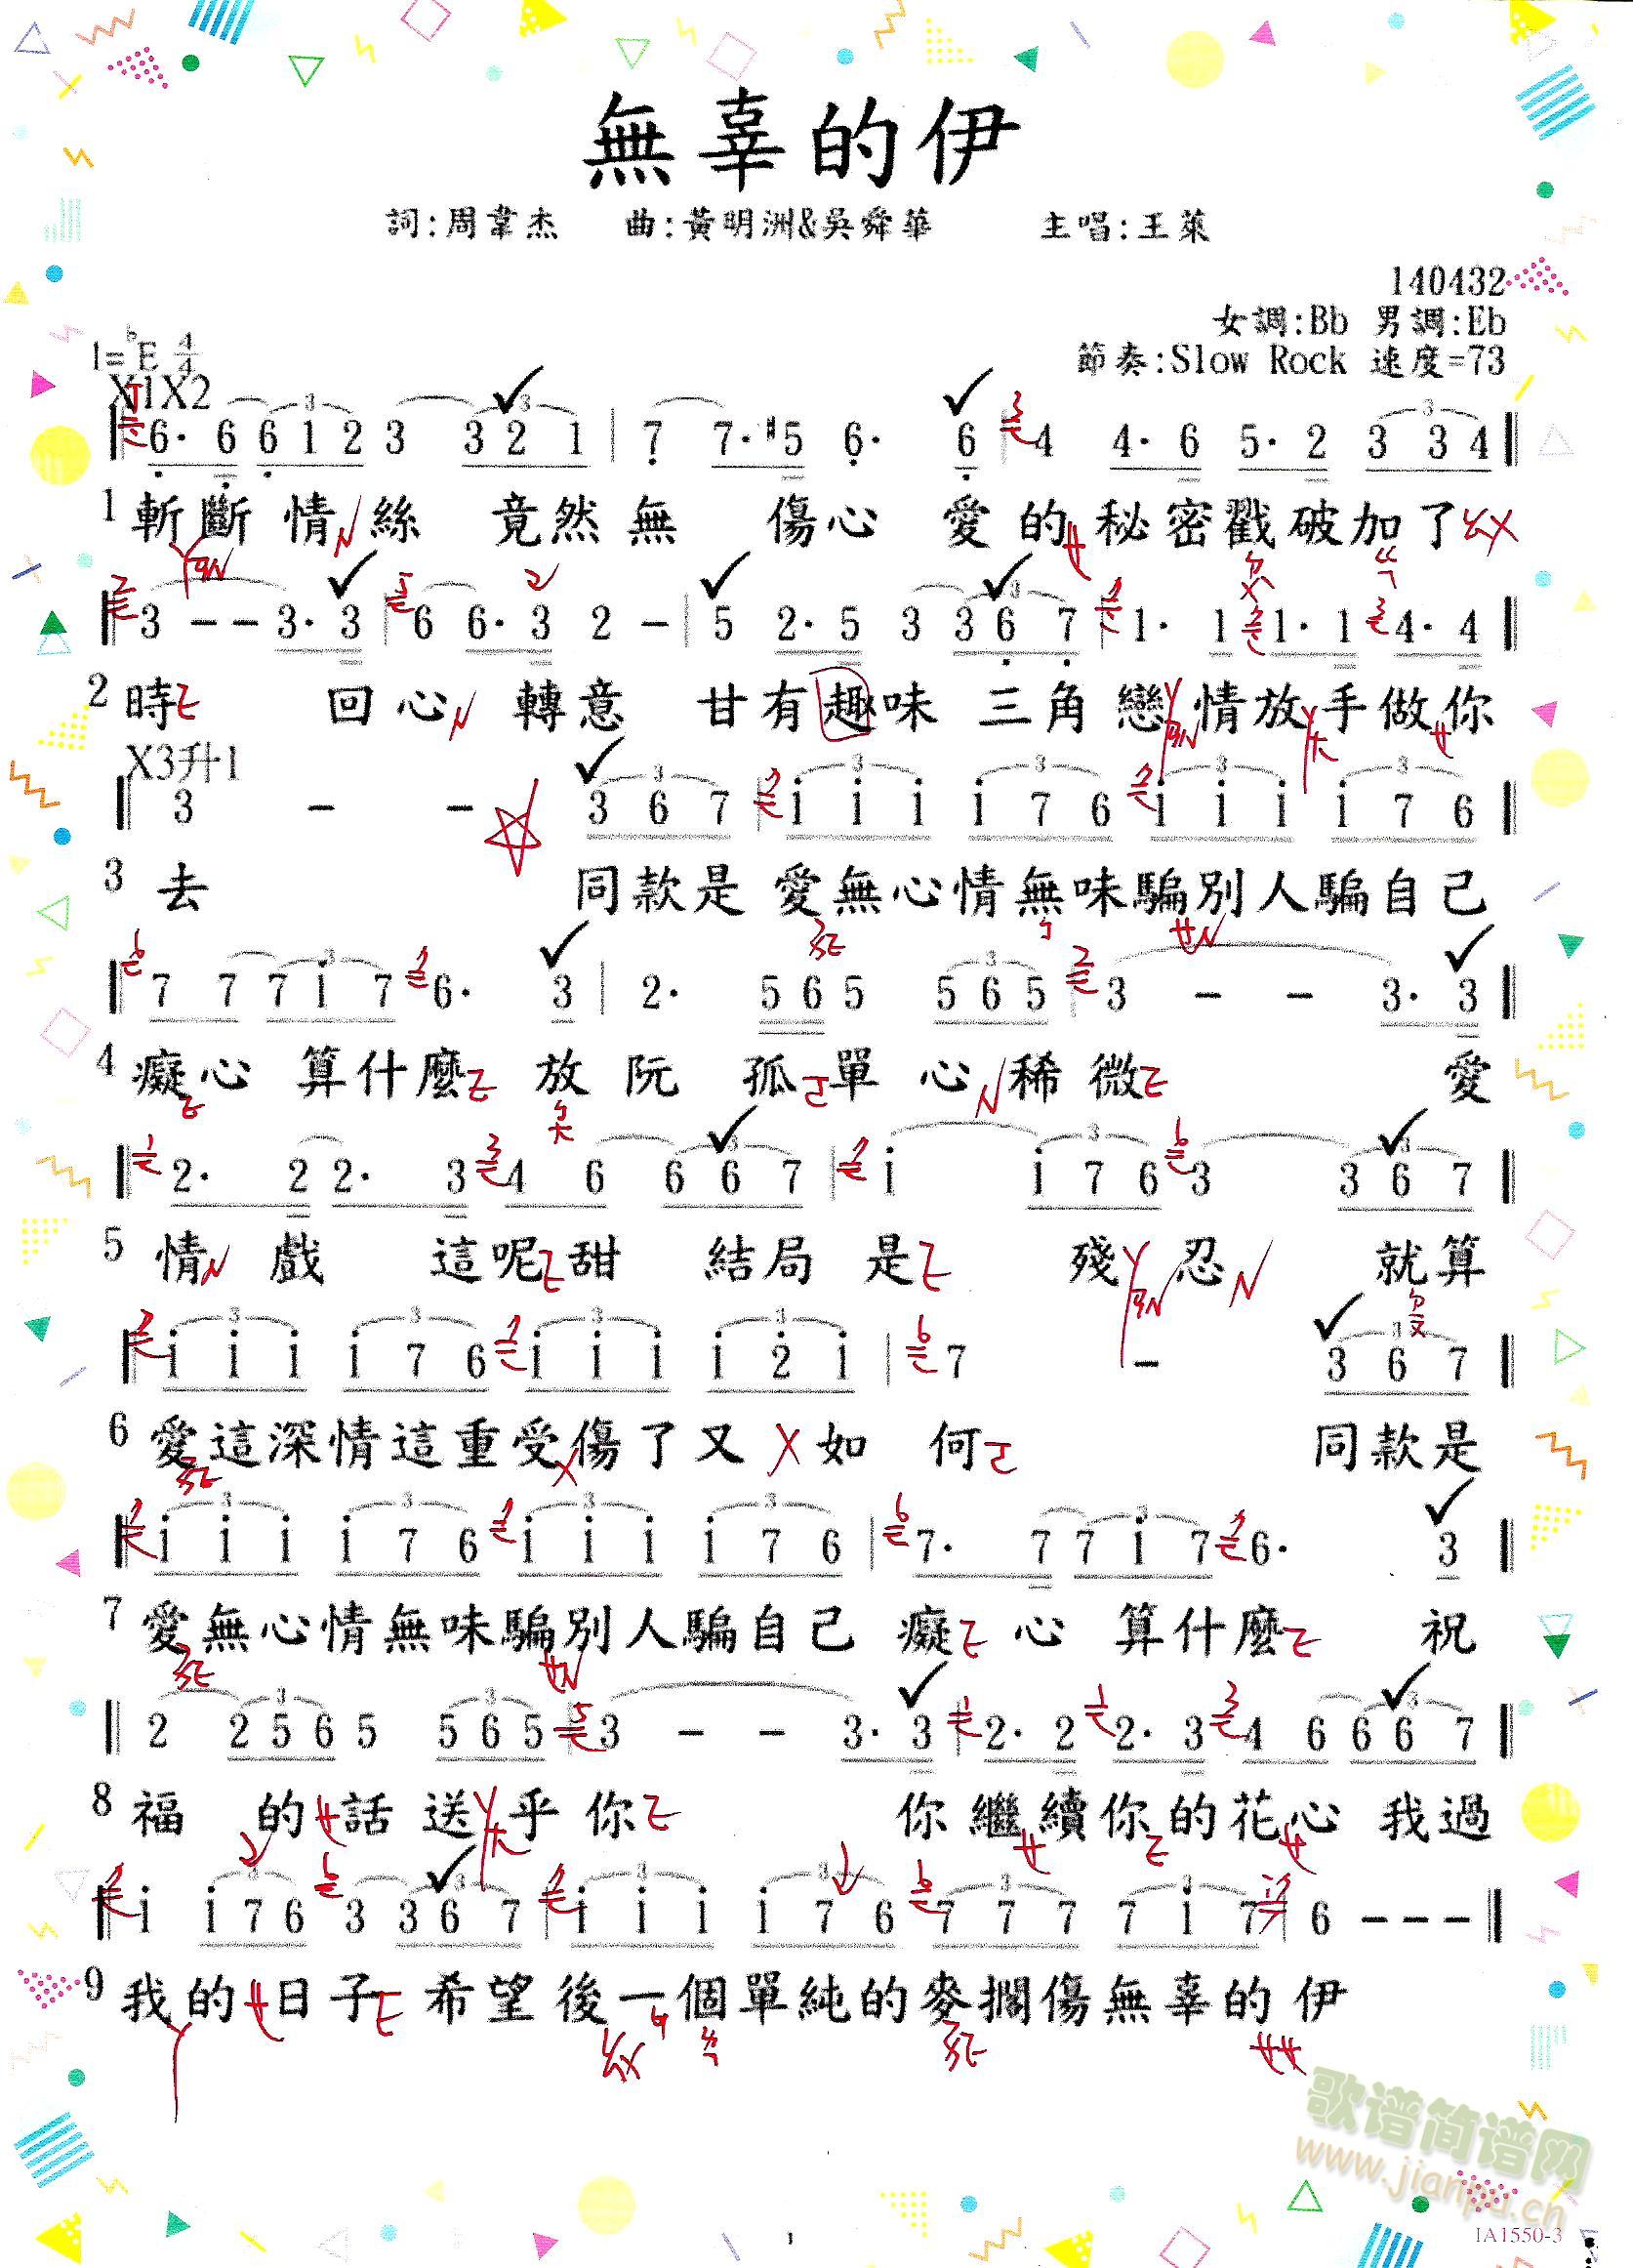 無辜的伊
詞:周韋杰 曲:黃明洲&吳舜華 主唱:王萊
140432
女調:Bb 男調:Eb
1=bE 4/4 節奏:Slow Rock 速度=73
X1X2
6· 6 6 1 2 3 3 2 1 | 7 7· #5 6· 6 | 4 4· 6 5· 2 3 3 4
1 斬斷情絲 竟然無 傷心 愛的秘密戳破加了
3 - - 3· 3 | 6 6· 3 2 - | 5 2· 5 3 3 6 7 | 1· 1 1· 1 4· 4
2 時 回心轉意 甘有趣味 三角戀情放手做你
X3升1
3 - - 3 6 7 | i i i i 7 6 i i i i 7 6
3 去 同款是愛無心情無味騙別人騙自己
7 7 7 i 7 6· 3 | 2· 5 6 5 5 6 5 | 3 - - 3· 3
4 癡心 算什麼 放阮 孤單心稀微 愛
2· 2 2· 3 4 6 6 6 7 | i i 7 6 3 3 6 7
5 情戲 這呢甜 結局是 殘忍 就算
i i i i 7 6 i i i i 2 i | 7 - 3 6 7
6 愛這深情這重受傷了又如何 同款是
i i i i 7 6 i i i i 7 6 | 7· 7 7 i 7 6· 3
7 愛無心情無味騙別人騙自己 癡心 算什麼 祝
2 2 5 6 5 5 6 5 | 3 - - 3· 3 | 2· 2 2· 3 4 6 6 6 7
8 福 的話送乎你 你繼續你的花心 我過
i i 7 6 3 3 6 7 | i i i i 7 6 7 7 7 7 i 7 | 6 - - -
9 我的日子 希望後一個單純的麥擱傷無辜的伊
歌谱简谱网
www.jianpu.cn
1
IA1550-3